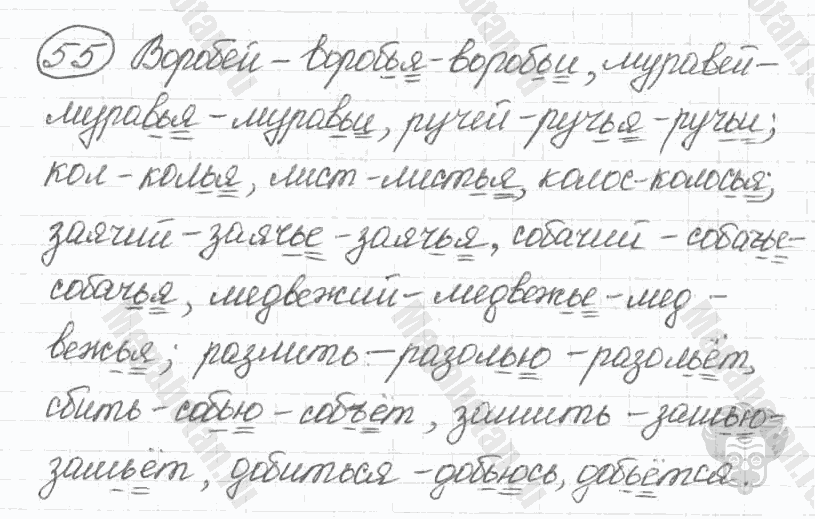 55 Воробей - воробья - воробьи, муравей -
муравья - муравьи, ручей - ручья - ручьи;
кол - колья, лист - листья, колос - колосья;
заячий - заячье - заячья, собачий - собачье -
собачья, медвежий - медвежье - мед -
вежья; разлить - разолью - разольёт,
сбить - собью - собьёт, зашить - зашью -
зашьёт, добиться - добьюсь, добьётся.